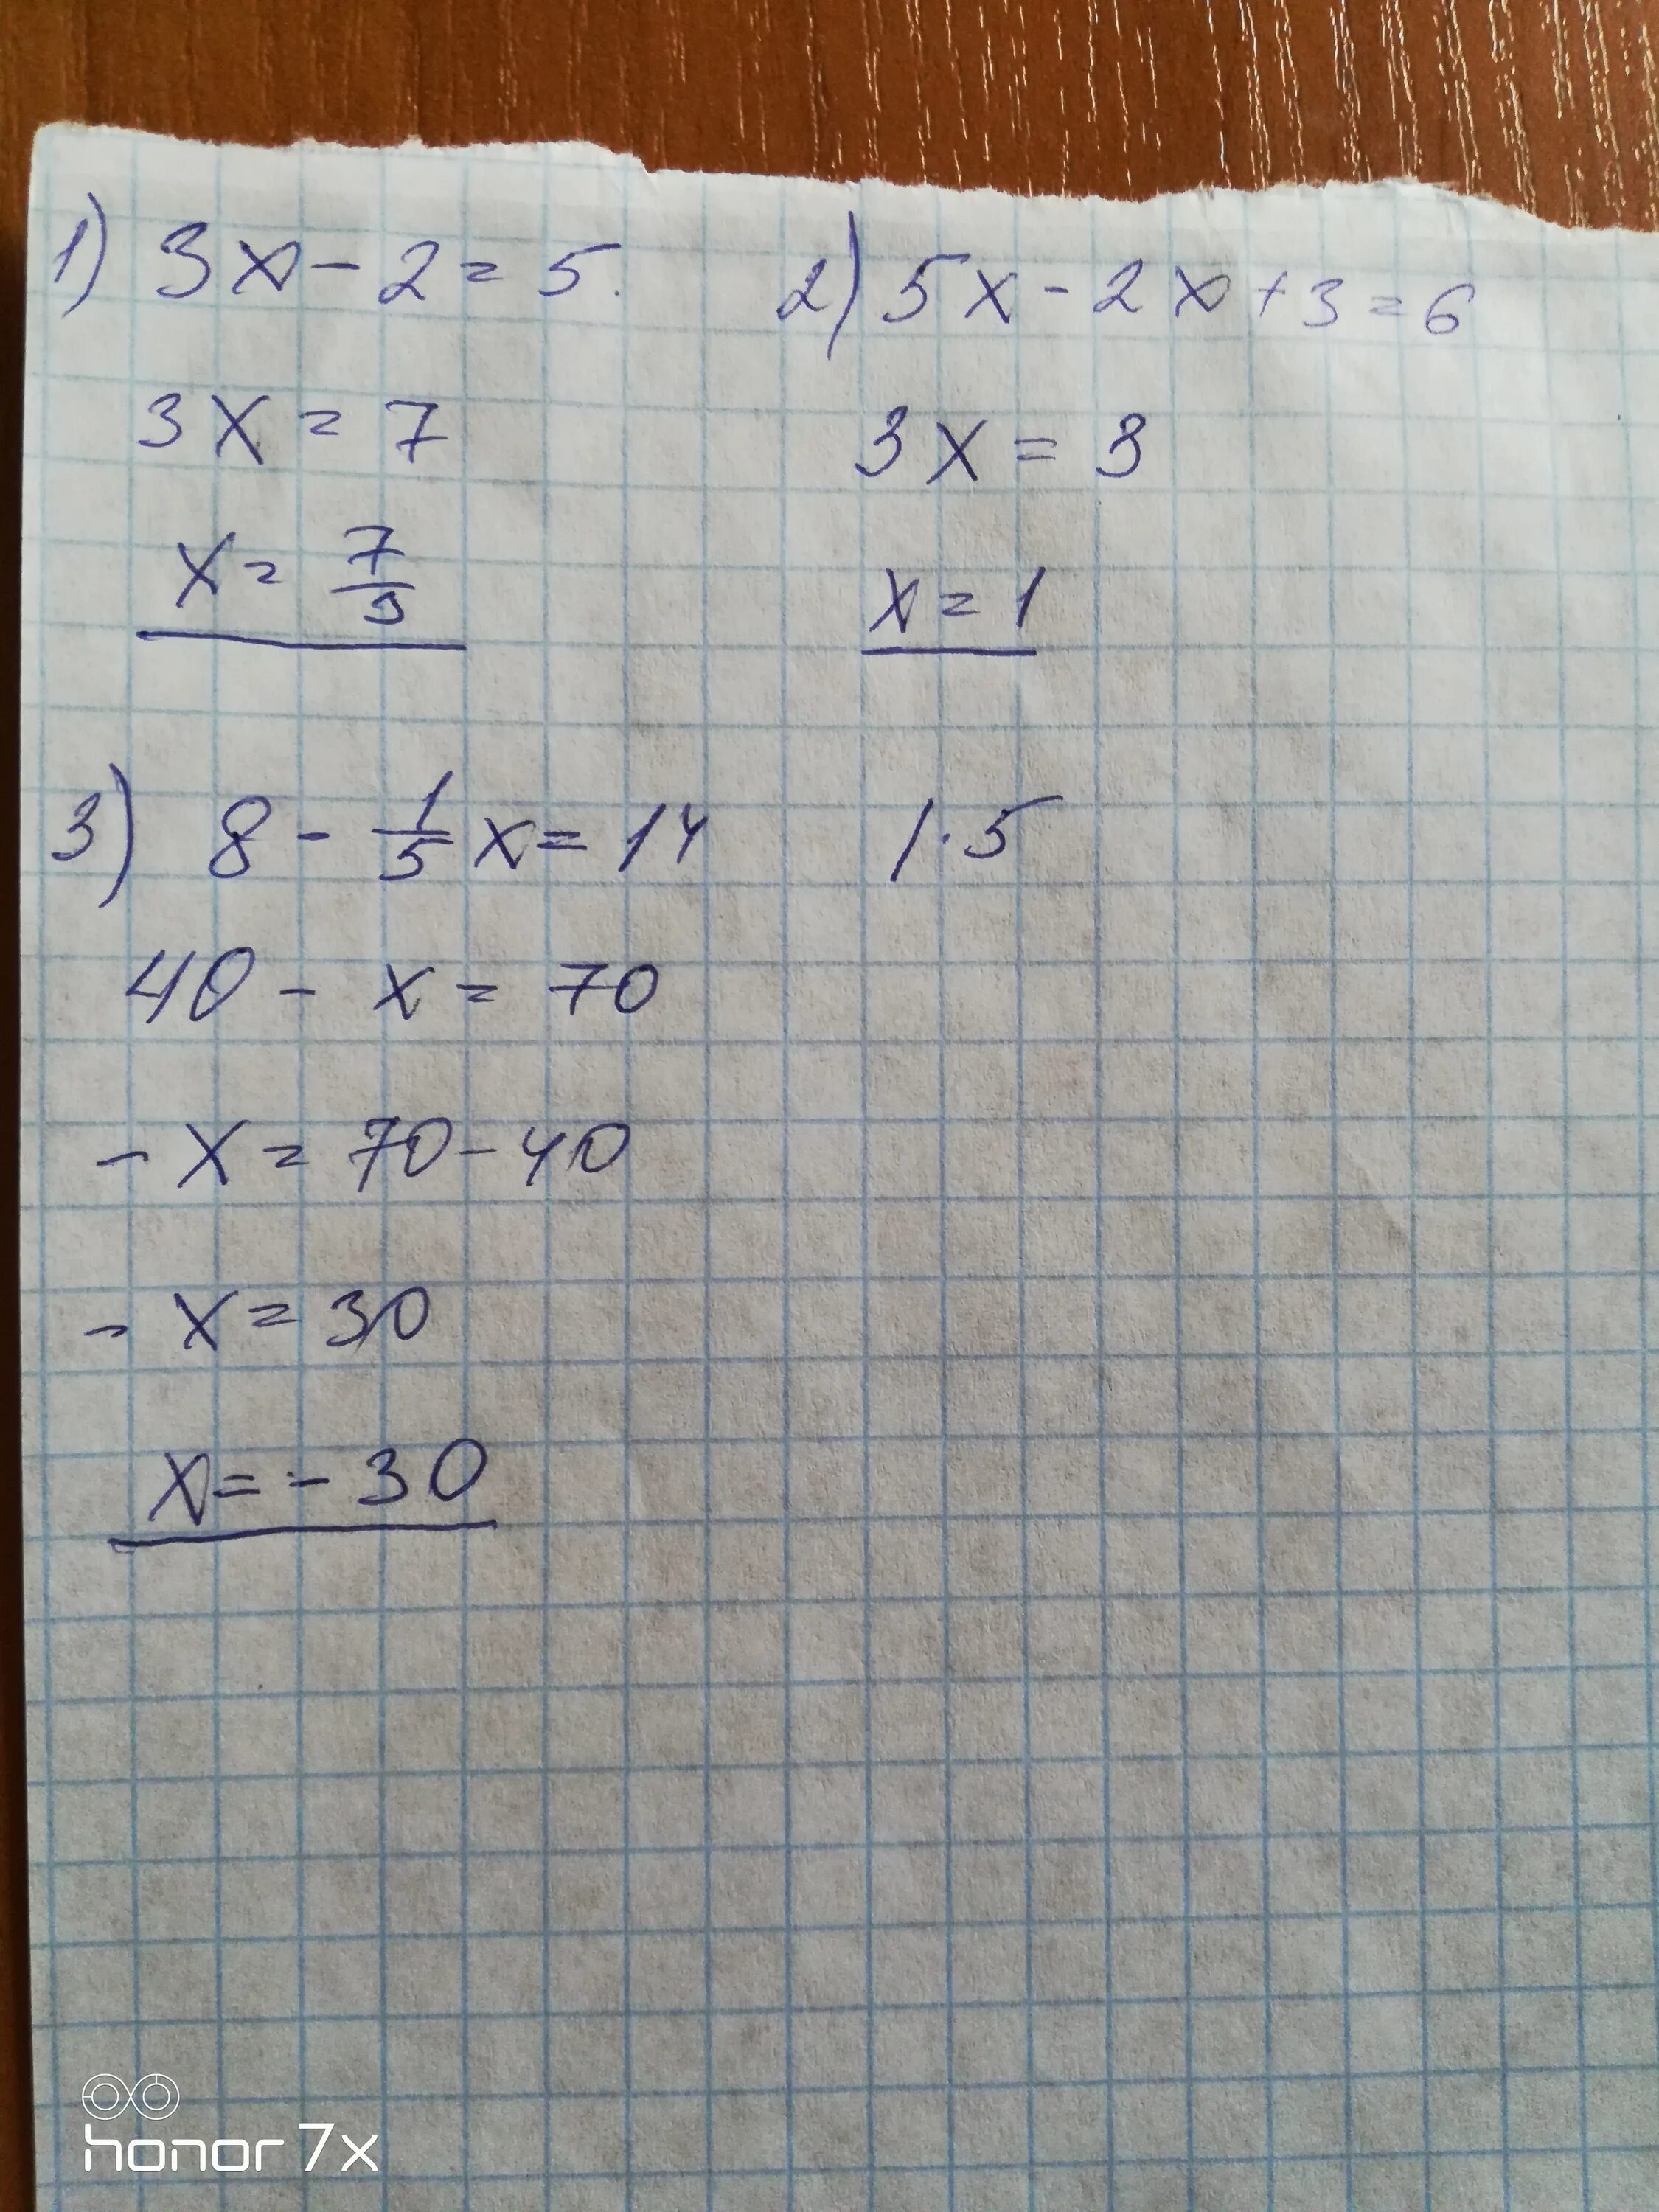 1) 3x - 2 = 5.
3x = 7
x = 7/3
2) 5x - 2x + 3 = 6
3x = 3
x = 1
3) 8 - 1/5 x = 14 | · 5
40 - x = 70
- x = 70 - 40
- x = 30
x = - 30
honor 7x